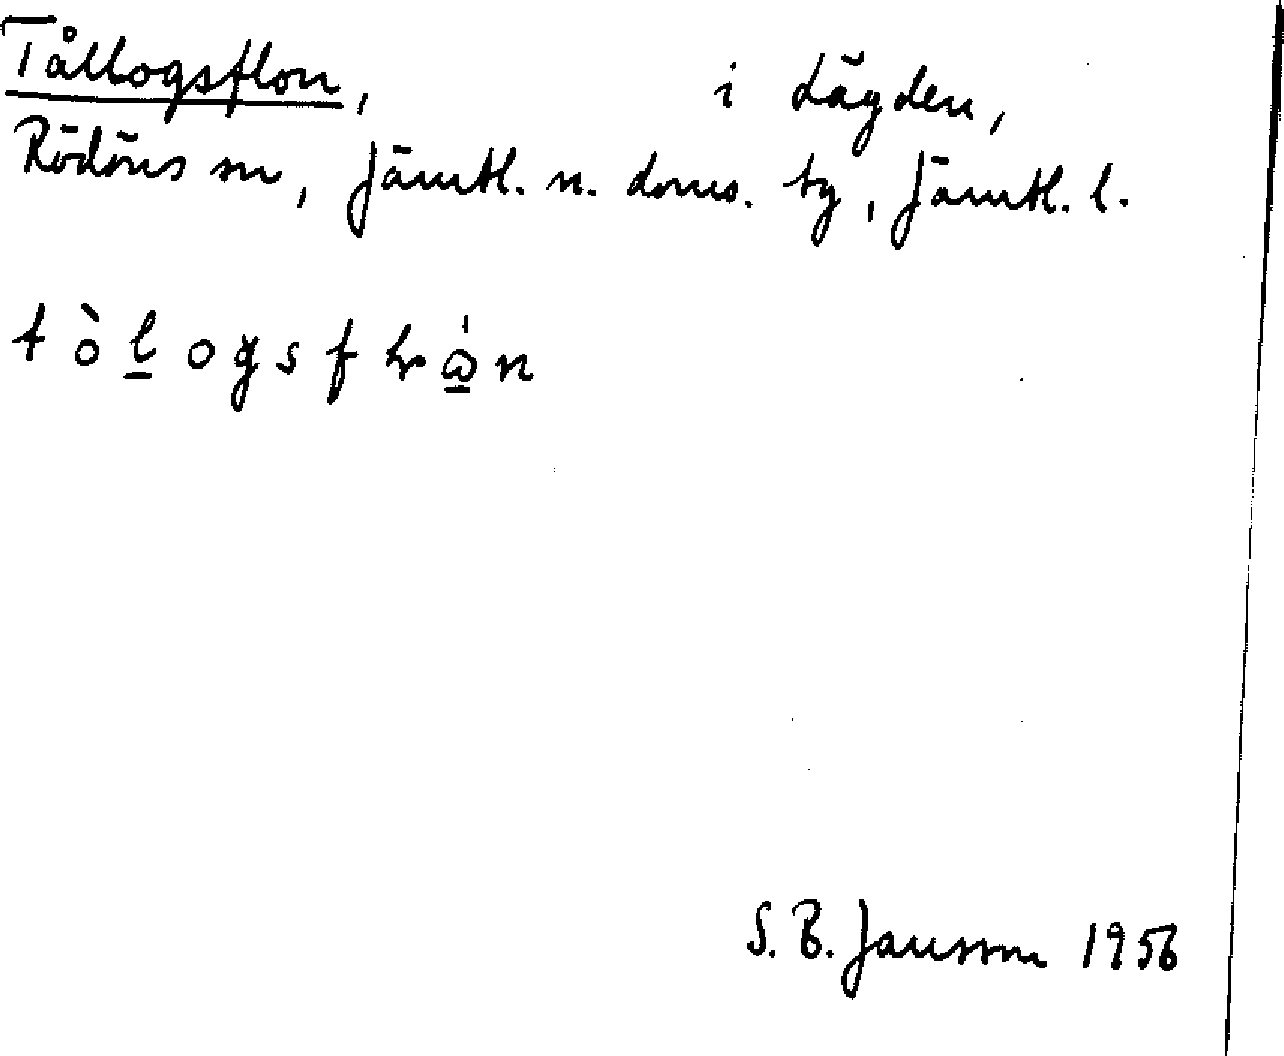 Tållogsflon, i Lägden,
Rödöns sn, Jämtl. n. doms. tg, Jämtl. l.
S. B. Jansson 1956